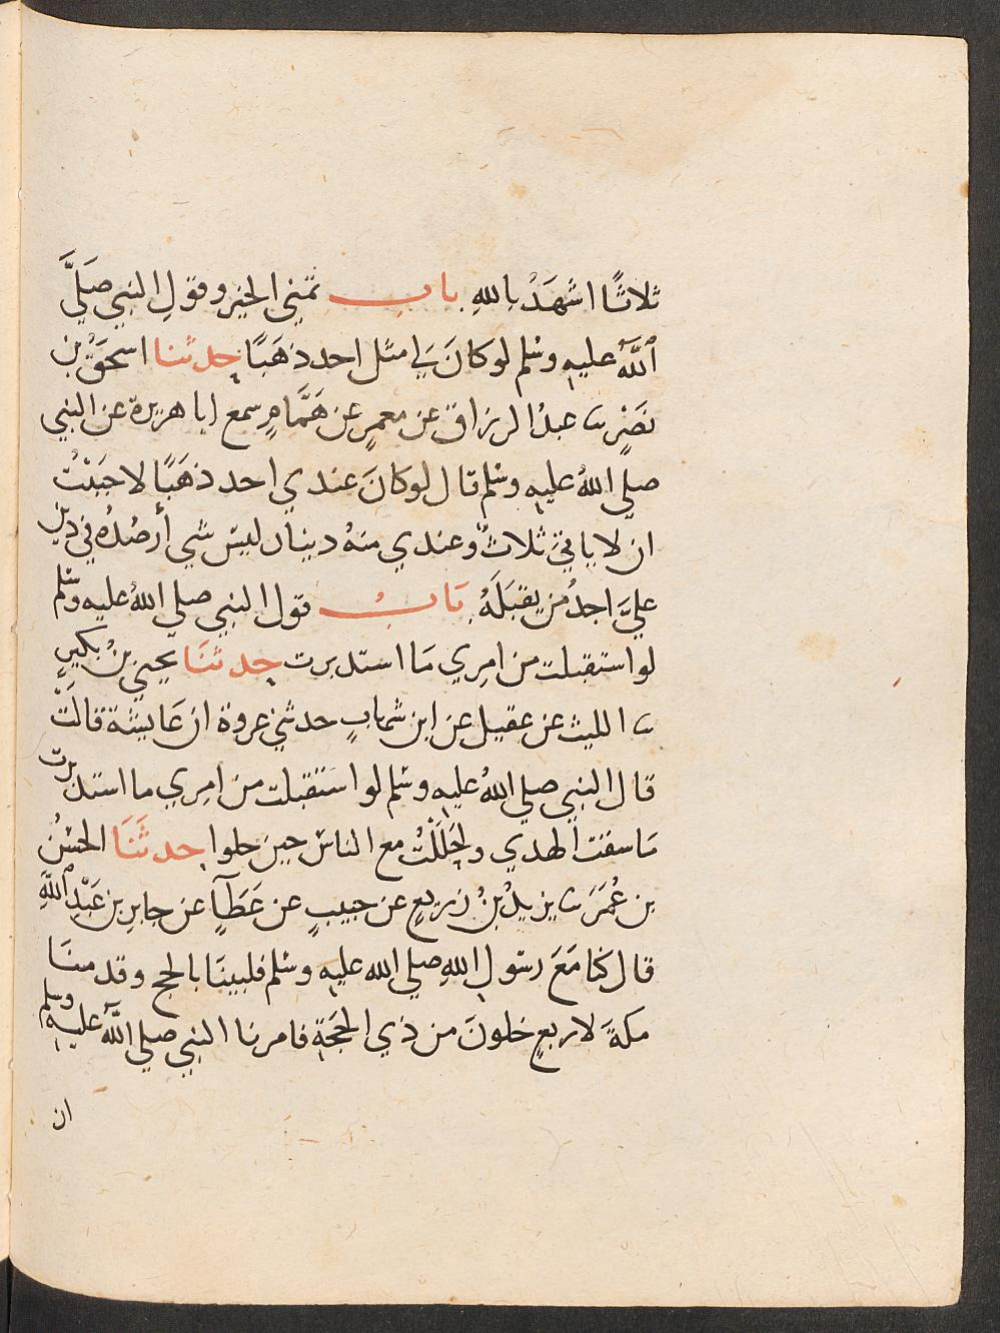 ثلاثًا اشهَدُ باللهِ باب تمني الخير وقولِ النبي صَلَّي
اللَّهُ عليه وسلم لو كانَ لي مثل احد ذهَبًا حدثنا اسحَقُ بن
نَصْرٍ ثنا عبدُ الرزاق عن معمرٍ عن هَمَّامٍ سمع ابا هريرة عن النبي
صلي اللهُ عليهِ وسلم قال لو كانَ عندي احد ذهَبًا لاحبَبْتُ
ان لا ياتيَ ثلاثٌ وعندي منهُ دينار ليسَ شي أرصُدُه في دينٍ
عليَّ اجدُ من يقبَلَهُ بَابُ قول النبي صلي اللهُ عليه وسلم
لو استقبلت من امرِي مَا استدبرت حدثنَا يحيي بنُ بكيرٍ
ثنا الليث عن عقيل عن ابن شهابٍ حدثني عروة ان عَايشة قالَتْ
قال النبي صلي اللهُ عليه وسلم لو استقبلت من امرِي ما استدبرت
مَا سقت الهدي ولحَلَلْتُ مع الناسِ حين حلوا حدثَنَا الحسَنُ
بن عُمَرَ ثنا يزيدُ بنُ زريعٍ عن حبيبٍ عن عَطَآءٍ عن جابرِ بن عَبْدِ اللهِ
قال كنا مَعَ رسُولِ اللهِ صلي الله عليه وسلم فلبينَا بالحج وقدمنَا
مكةَ لاربعٍ خلونَ من ذي الحجَةِ فامرنا النبي صلي اللَّهُ عليهِ وسلم
ان